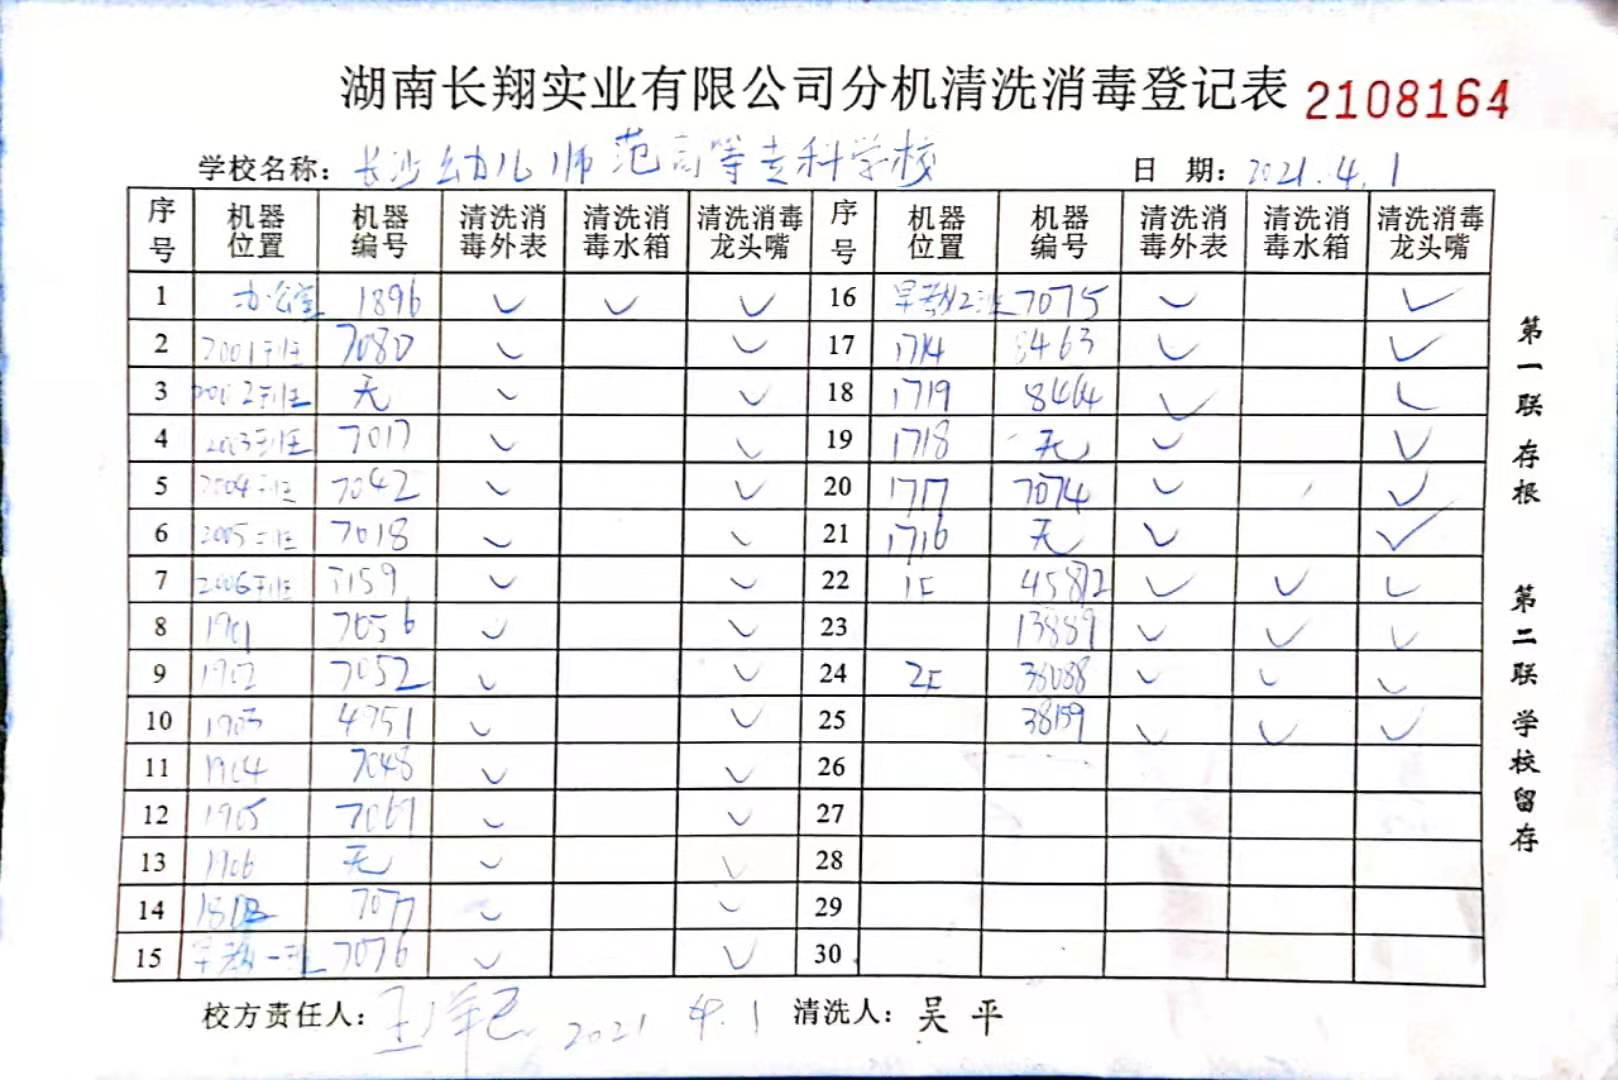 湖南长翔实业有限公司分机清洗消毒登记表 2108164
学校名称：长沙幼儿师范高等专科学校 日 期：2021.4.1
序号 机器位置 机器编号 清洗消毒外表 清洗消毒水箱 清洗消毒龙头嘴 序号 机器位置 机器编号 清洗消毒外表 清洗消毒水箱 清洗消毒龙头嘴
1 办公室 1896 ✓ ✓ ✓ 16 早教2班 7075 ✓ ✓
2 2001 7080 ✓ ✓ 17 1714 8463 ✓ ✓
3 2002 无 ✓ ✓ 18 1719 8464 ✓ ✓
4 2003 7017 ✓ ✓ 19 1718 无 ✓ ✓
5 2004 7042 ✓ ✓ 20 1717 7074 ✓ ✓
6 2005 7018 ✓ ✓ 21 1716 无 ✓ ✓
7 2006 7159 ✓ ✓ 22 1F ✓ ✓ ✓
8 1901 7056 ✓ ✓ 23 13889 ✓ ✓ ✓
9 1902 7052 ✓ ✓ 24 2F 38088 ✓ ✓ ✓
10 1903 4751 ✓ ✓ 25 38159 ✓ ✓ ✓
11 1904 7048 ✓ ✓ 26
12 1905 7067 ✓ ✓ 27
13 1906 无 ✓ ✓ 28
14 7077 ✓ ✓ 29
15 早教一班 7076 ✓ ✓ 30
校方责任人： 2021 4.1 清洗人：吴平
第一联存根 第二联学校留存